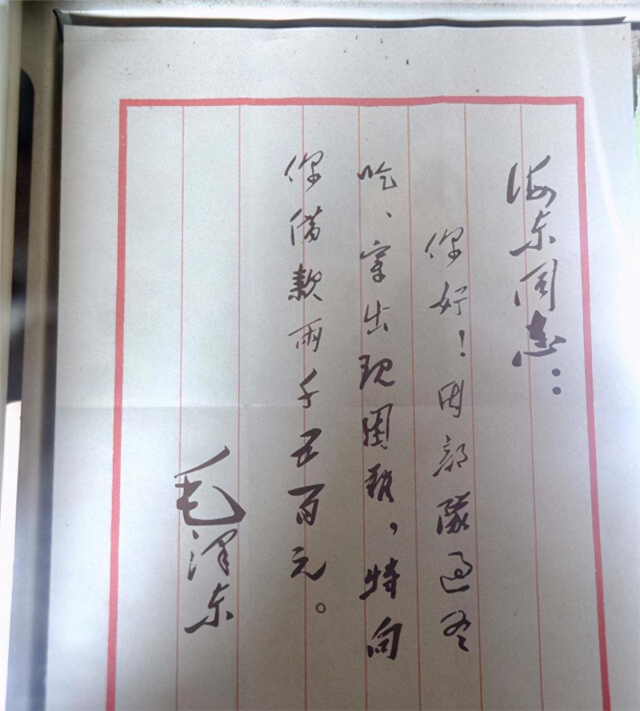 海东同志：
你好！因部隊過冬
吃、穿出现困难，特向
你借款兩千五百元。
毛泽东